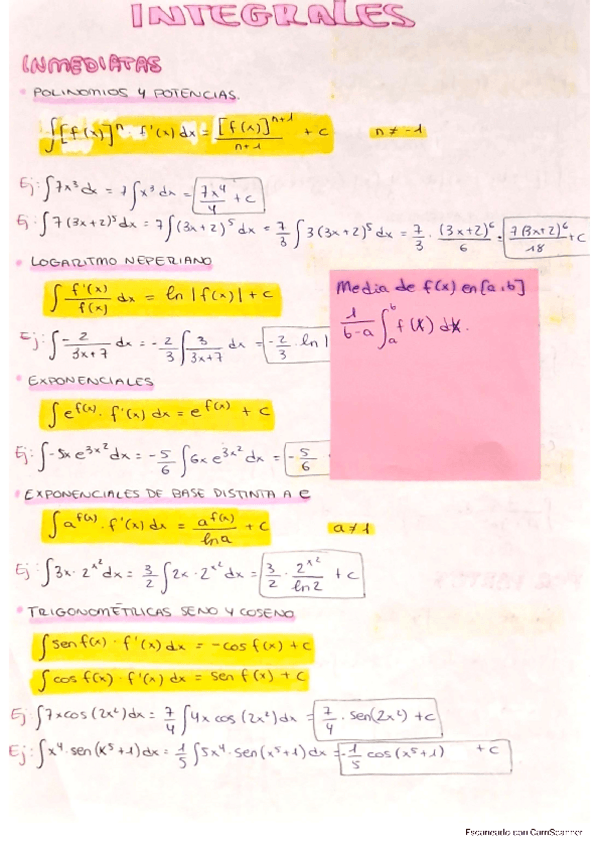 INTEGRALES
INMEDIATAS
• POLINOMIOS Y POTENCIAS.
∫[f(x)]ⁿ · f'(x) dx = [f(x)]ⁿ⁺¹/n+1 + c   n ≠ -1
Ej: ∫7x³dx = 7∫x³dx = 7x⁴/4 + c
Ej: ∫7(3x+2)⁵dx = 7∫(3x+2)⁵dx = 7/3 ∫3(3x+2)⁵dx = 7/3 · (3x+2)⁶/6 = 7(3x+2)⁶/18 + c
• LOGARITMO NEPERIANO
∫ f'(x)/f(x) dx = ln|f(x)| + c
Ej: ∫ -2/3x+7 dx = -2/3 ∫ 3/3x+7 dx = -2/3 · ln|
Media de f(x) en [a,b]
1/b-a ∫ₐᵇ f(x) dx.
• EXPONENCIALES
∫e^f(x) · f'(x) dx = e^f(x) + c
Ej: ∫-5xe^3x² dx = -5/6 ∫6xe^3x² dx = -5/6
• EXPONENCIALES DE BASE DISTINTA A e
∫a^f(x) · f'(x) dx = a^f(x)/ln a + c   a ≠ 1
Ej: ∫3x · 2^x² dx = 3/2 ∫2x · 2^x² dx = 3/2 · 2^x²/ln2 + c
• TRIGONOMÉTRICAS SENO Y COSENO
∫sen f(x) · f'(x) dx = -cos f(x) + c
∫cos f(x) · f'(x) dx = sen f(x) + c
Ej: ∫7x cos (2x²)dx = 7/4 ∫4x cos (2x²)dx = 7/4 · sen(2x²) + c
Ej: ∫x⁴ · sen(x⁵+1)dx = 1/5 ∫5x⁴ · sen(x⁵+1)dx = -1/5 cos(x⁵+1) + c
Escaneado con CamScanner